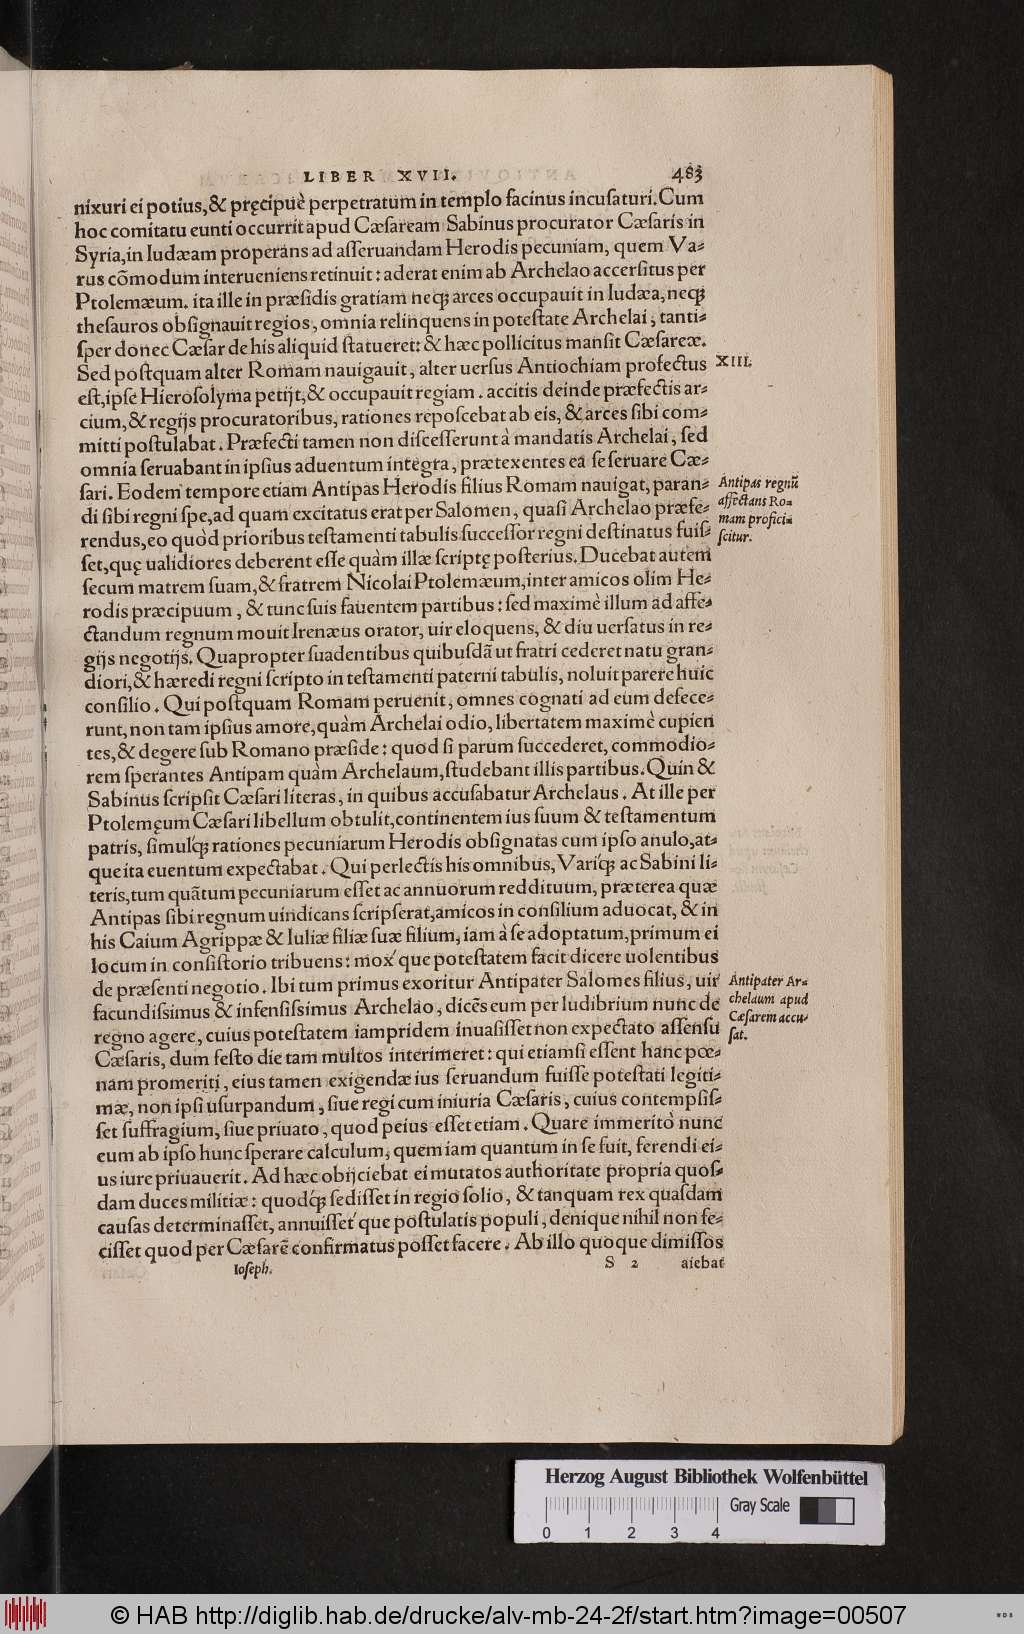 LIBER XVII. 483
nixuri ei potius, & pręcipuè perpetratum in templo facinus incusaturi. Cum
hoc comitatu eunti occurrit apud Cæsaream Sabinus procurator Cæsaris in
Syria, in Iudæam properans ad asseruandam Herodis pecuniam, quem Va-
rus cõmodum interueniens retinuit: aderat enim ab Archelao accersitus per
Ptolemæum. ita ille in præsidis gratiam neq; arces occupauit in Iudæa, neq;
thesauros obsignauit regios, omnia relinquens in potestate Archelai, tanti-
sper donec Cæsar de his aliquid statueret: & hæc pollicitus mansit Cæsareæ.
Sed postquam alter Romam nauigauit, alter uersus Antiochiam profectus XIII.
est, ipse Hierosolyma petijt, & occupauit regiam. accitis deinde præfectis ar-
cium, & regijs procuratoribus, rationes reposcebat ab eis, & arces sibi com-
mitti postulabat. Præfecti tamen non discesserunt à mandatis Archelai, sed
omnia seruabant in ipsius aduentum integra, prætexentes ea se seruare Cæ-
sari. Eodem tempore etiam Antipas Herodis filius Romam nauigat, paran-
di sibi regni spe, ad quam excitatus erat per Salomen, quasi Archelao præfe-
rendus, eo quòd prioribus testamenti tabulis successor regni destinatus fuis-
set, quę ualidiores deberent esse quàm illæ scriptę posterius. Ducebat autem
secum matrem suam, & fratrem Nicolai Ptolemæum, inter amicos olim He-
rodis præcipuum, & tunc suis fauentem partibus: sed maximè illum ad affe-
ctandum regnum mouit Irenæus orator, uir eloquens, & diu uersatus in re-
gijs negotijs. Quapropter suadentibus quibusdã ut fratri cederet natu gran-
diori, & hæredi regni scripto in testamenti paterni tabulis, noluit parere huic
consilio. Qui postquam Romam peruenit, omnes cognati ad eum defece-
runt, non tam ipsius amore, quàm Archelai odio, libertatem maximè cupien
tes, & degere sub Romano præside: quod si parum succederet, commodio-
rem sperantes Antipam quàm Archelaum, studebant illis partibus. Quin &
Sabinus scripsit Cæsari literas, in quibus accusabatur Archelaus. At ille per
Ptolemęum Cæsari libellum obtulit, continentem ius suum & testamentum
patris, simulq́; rationes pecuniarum Herodis obsignatas cum ipso anulo, at-
que ita euentum expectabat. Qui perlectis his omnibus, Variq́; ac Sabini li-
teris, tum quãtum pecuniarum esset ac annuorum reddituum, præterea quæ
Antipas sibi regnum uindicans scripserat, amicos in consilium aduocat, & in
his Caium Agrippæ & Iuliæ filiæ suæ filium, iam à se adoptatum, primum ei
locum in consistorio tribuens: mox́ que potestatem facit dicere uolentibus
de præsenti negotio. Ibi tum primus exoritur Antipater Salomes filius, uir
facundissimus & infensissimus Archelao, dicẽs eum per ludibrium nunc de
regno agere, cuius potestatem iampridem inuasisset non expectato assensu
Cæsaris, dum festo die tam multos interimeret: qui etiamsi essent hanc pœ-
nam promeriti, eius tamen exigendæ ius seruandum fuisse potestati legiti-
mæ, non ipsi usurpandum, siue regi cum iniuria Cæsaris, cuius contempsis-
set suffragium, siue priuato, quod peius esset etiam. Quare immeritò nunc
eum ab ipso hunc sperare calculum, quem iam quantum in se fuit, ferendi ei-
us iure priuauerit. Ad hæc obijciebat ei mutatos authoritate propria quos-
dam duces militiæ: quodq́; sedisset in regio solio, & tanquam rex quasdam
causas determinasset, annuisset́ que postulatis populi, denique nihil non fe-
cisset quod per Cæsarẽ confirmatus posset facere. Ab illo quoque dimissos
Ioseph. S 2 aiebat
Antipas regnũ
affectans Ro-
mam profici-
scitur.
Antipater Ar-
chelaum apud
Cæsarem accu-
sat.
Herzog August Bibliothek Wolfenbüttel
Gray Scale
0 1 2 3 4
© HAB http://diglib.hab.de/drucke/alv-mb-24-2f/start.htm?image=00507